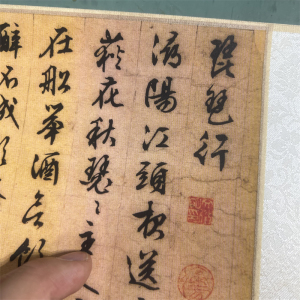 琵琶行
潯陽江頭夜送
荻花秋瑟〻主人
在船舉酒欲飲
醉不成